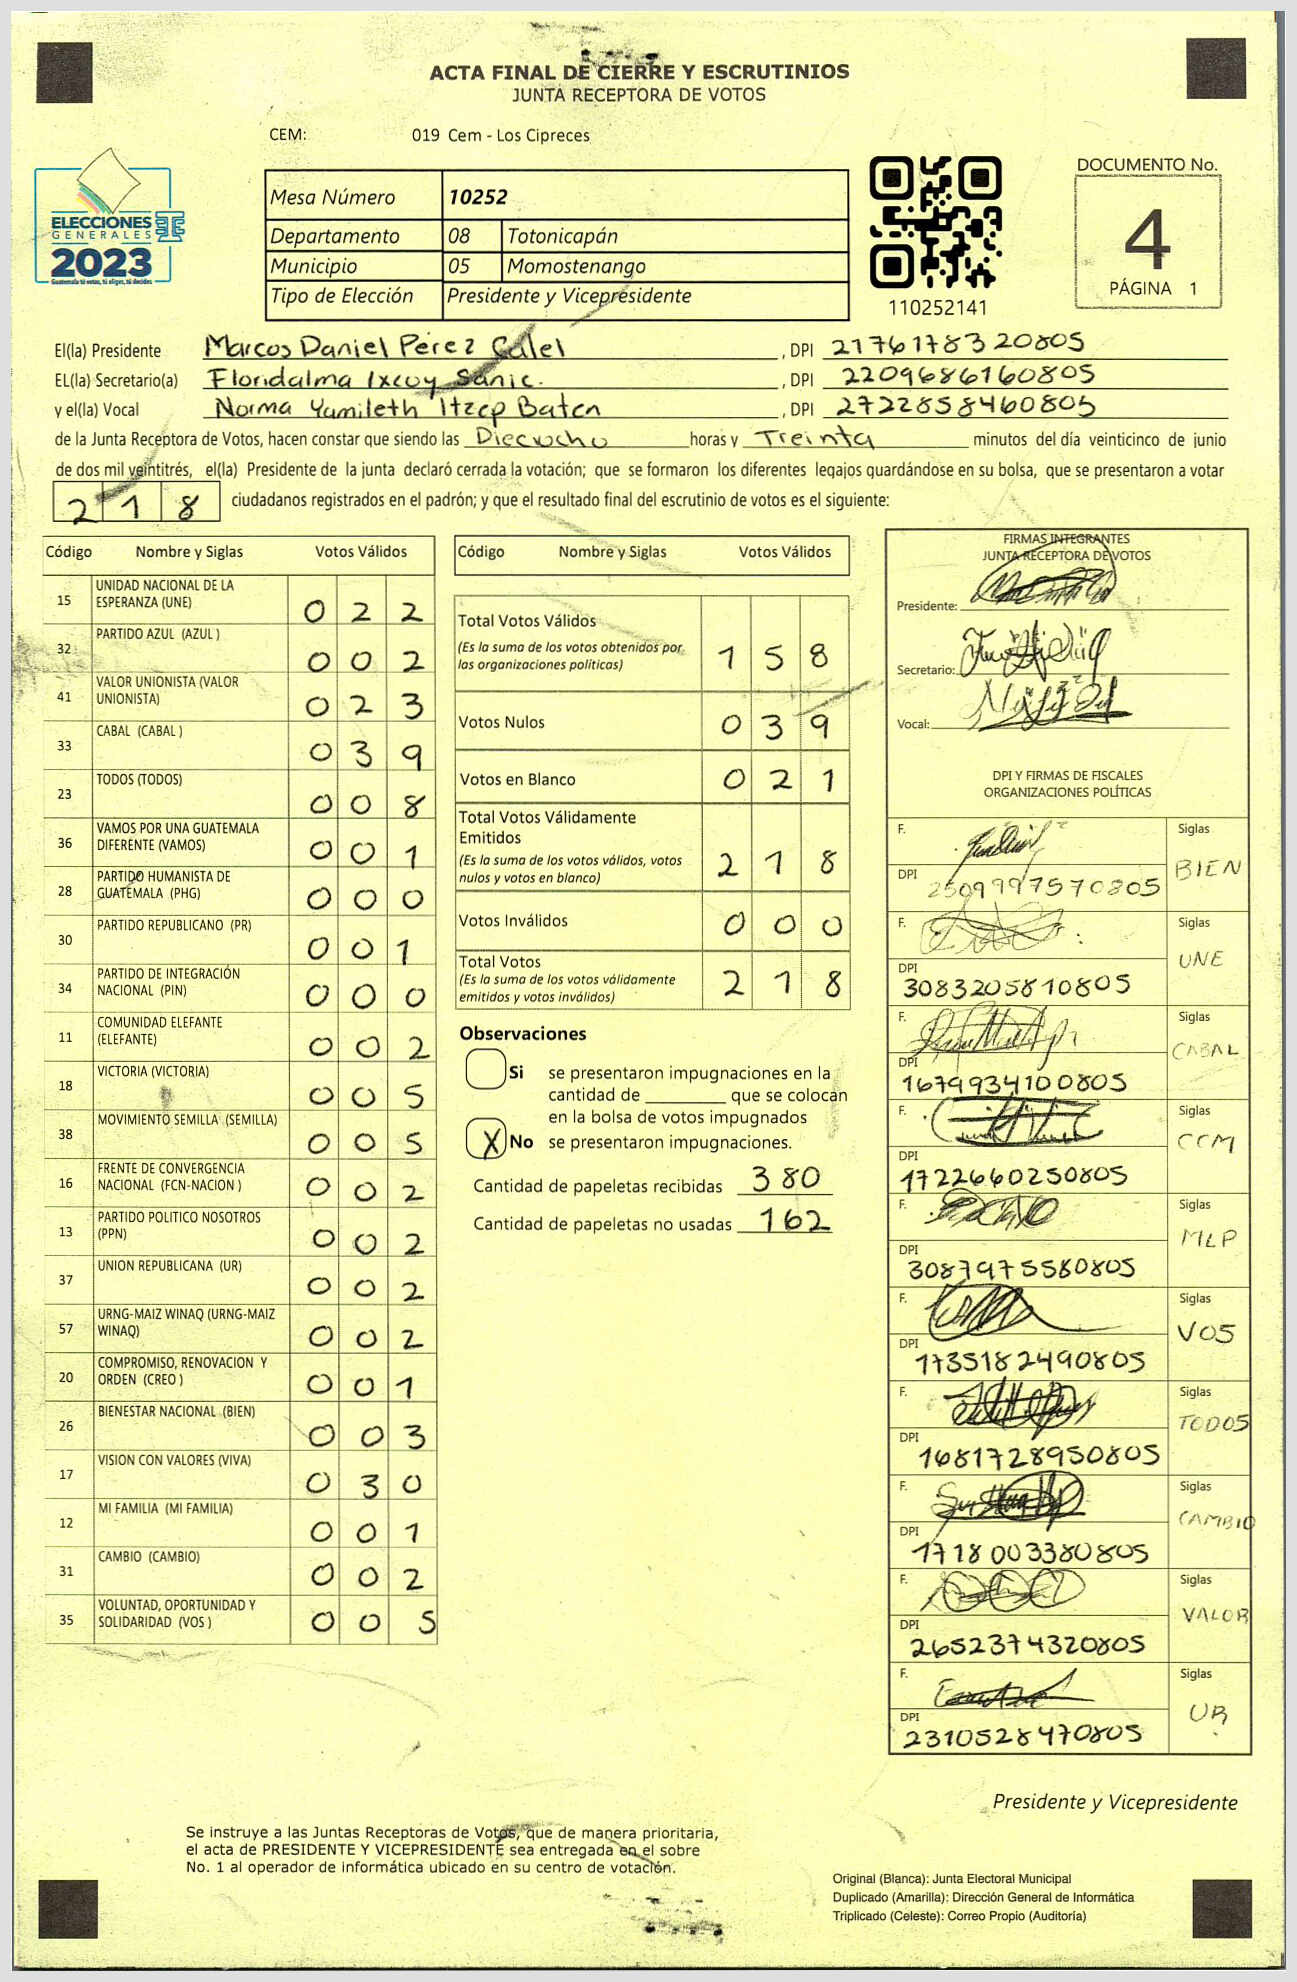 ACTA FINAL DE CIERRE Y ESCRUTINIOS
JUNTA RECEPTORA DE VOTOS
CEM: 019 Cem - Los Cipreces
ELECCIONES
GENERALES
2023
Guatemala tú votas, tú eliges, tú decides
Mesa Número 10252
Departamento 08 Totonicapán
Municipio 05 Momostenango
Tipo de Elección Presidente y Vicepresidente
110252141
DOCUMENTO No.
4
PÁGINA 1
El(la) Presidente Marcos Daniel Pérez Calel , DPI 2176178320805
EL(la) Secretario(a) Floridalma Ixcoy Sanic. , DPI 2209686160805
y el(la) Vocal Norma Yamileth Itzep Baten , DPI 2722858460805
de la Junta Receptora de Votos, hacen constar que siendo las Dieciocho horas y Treinta minutos del día veinticinco de junio
de dos mil veintitrés, el(la) Presidente de la junta declaró cerrada la votación; que se formaron los diferentes legajos guardándose en su bolsa, que se presentaron a votar
218 ciudadanos registrados en el padrón; y que el resultado final del escrutinio de votos es el siguiente:
Código Nombre y Siglas Votos Válidos
15 UNIDAD NACIONAL DE LA
ESPERANZA (UNE) 022
32 PARTIDO AZUL (AZUL ) 002
41 VALOR UNIONISTA (VALOR
UNIONISTA) 023
33 CABAL (CABAL ) 039
23 TODOS (TODOS) 008
36 VAMOS POR UNA GUATEMALA
DIFERENTE (VAMOS) 001
28 PARTIDO HUMANISTA DE
GUATEMALA (PHG) 000
30 PARTIDO REPUBLICANO (PR) 001
34 PARTIDO DE INTEGRACIÓN
NACIONAL (PIN) 000
11 COMUNIDAD ELEFANTE
(ELEFANTE) 002
18 VICTORIA (VICTORIA) 005
38 MOVIMIENTO SEMILLA (SEMILLA) 005
16 FRENTE DE CONVERGENCIA
NACIONAL (FCN-NACION ) 002
13 PARTIDO POLITICO NOSOTROS
(PPN) 002
37 UNION REPUBLICANA (UR) 002
57 URNG-MAIZ WINAQ (URNG-MAIZ
WINAQ) 002
20 COMPROMISO, RENOVACION Y
ORDEN (CREO ) 001
26 BIENESTAR NACIONAL (BIEN) 003
17 VISION CON VALORES (VIVA) 030
12 MI FAMILIA (MI FAMILIA) 001
31 CAMBIO (CAMBIO) 002
35 VOLUNTAD, OPORTUNIDAD Y
SOLIDARIDAD (VOS ) 005
Código Nombre y Siglas Votos Válidos
Total Votos Válidos 158
(Es la suma de los votos obtenidos por
las organizaciones políticas)
Votos Nulos 039
Votos en Blanco 021
Total Votos Válidamente
Emitidos 218
(Es la suma de los votos válidos, votos
nulos y votos en blanco)
Votos Inválidos 000
Total Votos 218
(Es la suma de los votos válidamente
emitidos y votos inválidos)
Observaciones
Si se presentaron impugnaciones en la
cantidad de ________ que se colocan
en la bolsa de votos impugnados
X No se presentaron impugnaciones.
Cantidad de papeletas recibidas 380
Cantidad de papeletas no usadas 162
FIRMAS INTEGRANTES
JUNTA RECEPTORA DE VOTOS
Presidente:
Secretario:
Vocal:
DPI Y FIRMAS DE FISCALES
ORGANIZACIONES POLÍTICAS
F. Siglas
DPI 2509997570805 BIEN
F. Siglas
DPI 3083205810805 UNE
F. Siglas
DPI 1679934100805 CABAL
F. Siglas
DPI 1722660250805 CCM
F. Siglas
DPI 3087975580805 MLP
F. Siglas
DPI 1735182490805 VOS
F. Siglas
DPI 1681728950805 TODOS
F. Siglas
DPI 1718003380805 CAMBIO
F. Siglas
DPI 2652374320805 VALOR
F. Siglas
DPI 2310528470805 UR
Presidente y Vicepresidente
Se instruye a las Juntas Receptoras de Votos, que de manera prioritaria,
el acta de PRESIDENTE Y VICEPRESIDENTE sea entregada en el sobre
No. 1 al operador de informática ubicado en su centro de votación.
Original (Blanca): Junta Electoral Municipal
Duplicado (Amarilla): Dirección General de Informática
Triplicado (Celeste): Correo Propio (Auditoría)